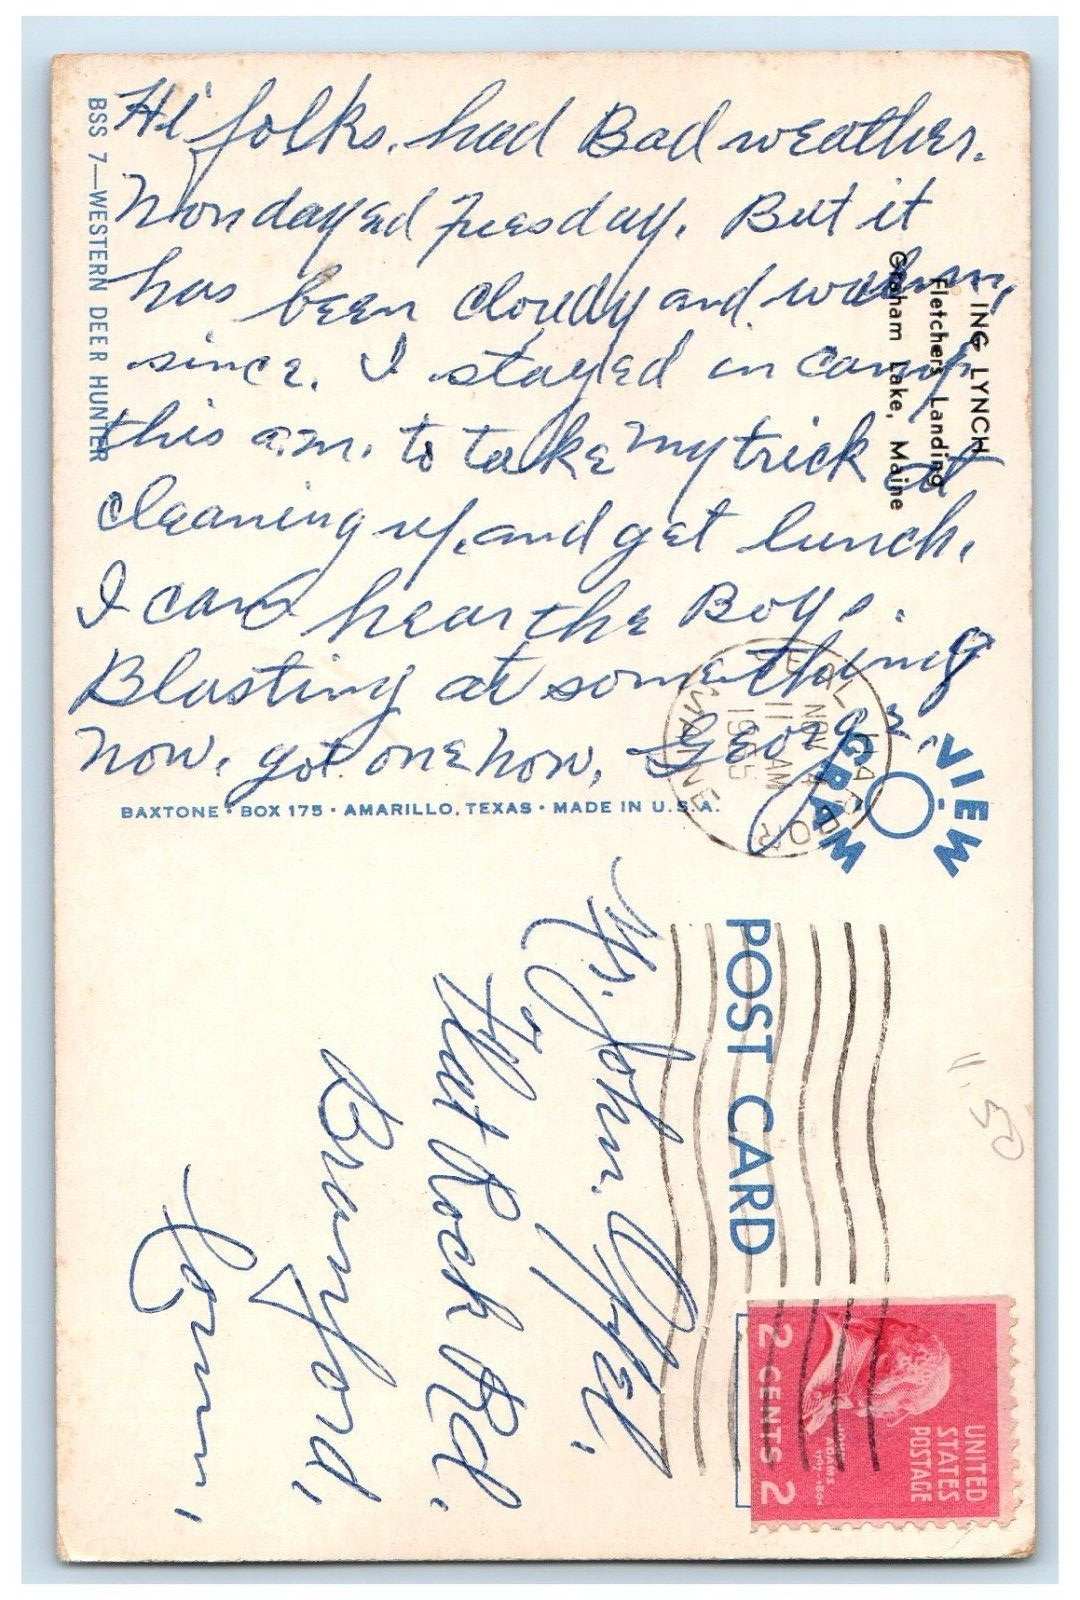 Hi folks. had Bad weather.
Monday ed Tuesday. But it
has been cloudy and warm,
since. I stayed in camp
this a.m. to take my trick at
cleaning up, and get lunch,
I can hear the Boys.
Blasting at something
now, got one now, George.
BSS 7—WESTERN DEER HUNTER
ING LYNCH
Fletchers Landing
Graham Lake, Maine
BAXTONE • BOX 175 • AMARILLO, TEXAS • MADE IN U.S.A.
VIEW
GRAM
SEAL HARBOR
NOV 4
11 AM
MAINE
POST CARD
Mr. John Offel,
Flat Rock Rd.
Branford,
Conn,
UNITED
STATES
POSTAGE
JOHN
ADAMS
2 CENTS 2